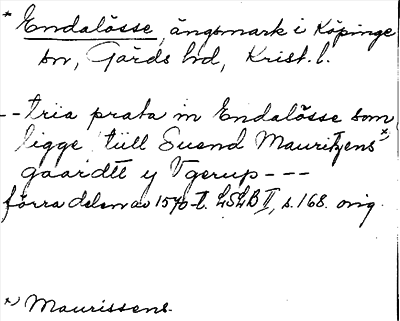 * Endalösse, ängsmark i Köpinge
sn, Gärds hd, Krist. l.
-- tria prata in Endalösse som
ligge tiill Suend Mauritzens*)
gaardtt y Vgerup ---
förra delen av 1570-t. LSLB II, s. 168. orig.
*) Maurissens.